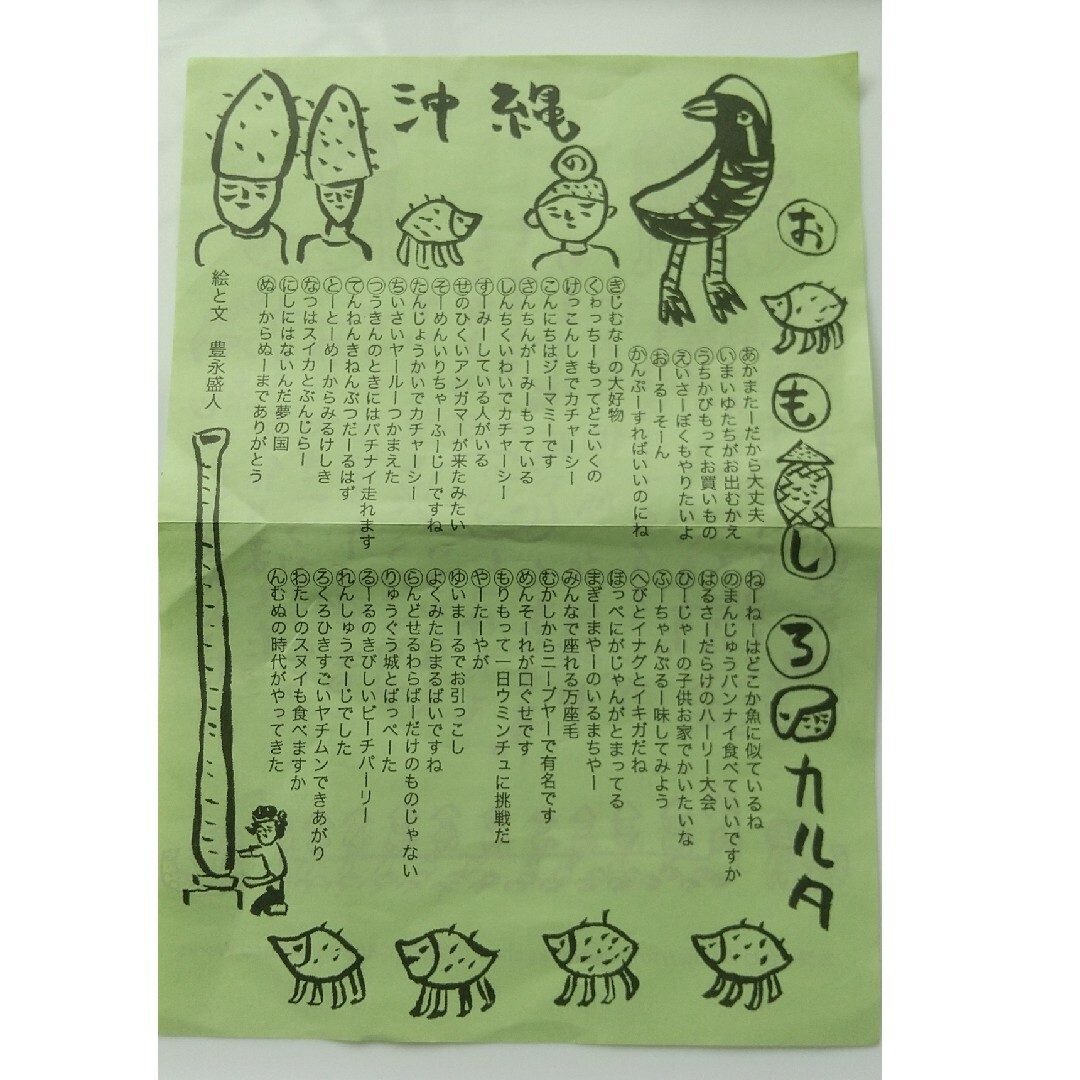 沖縄の
おもしろカルタ
あかまたーだから大丈夫
いまいゆたちがお出むかえ
うちかびもってお買いもの
えいさーぼくもやりたいよ
おーるーそーん
かんぷーすればいいのにね
きじむなーの大好物
くゎっちーもってどこいくの
けっこんしきでカチャーシー
こんにちはジーマミーです
さんちんがーみーもっている
しんちくいわいでカチャーシー
すーみーしている人がいる
せのひくいアンガマーが来たみたい
そーめんいりちゃーふーじーですね
たんじょうかいでカチャーシー
ちいさいヤールーつかまえた
つうきんのときにはパチナイ走れます
てんねんきねんぶつだーるはず
とーとーめーからみるけしき
なつはスイカとぶんじらー
にしにはないんだ夢の国
ぬーからぬーまでありがとう
ねーねーはどこか魚に似ているね
のまんじゅうパンナイ食べていいですか
はるさーだらけのハーリー大会
ひーじゃーの子供お家でかいたいな
ふーちゃんぷるー味してみよう
へびとイナグとイキガだね
ほっぺにがじゃんがとまってる
まぎーまやーのいるまちやー
みんなで座れる万座毛
むかしからニーブヤーで有名です
めんそーれが口ぐせです
もりもって一日ウミンチュに挑戦だ
やーたーやが
ゆいまーるでお引っこし
よくみたらまるばいですね
らんどせるわらばーだけのものじゃない
りゅうぐう城とばっぺーた
るーるのきびしいビーチパーリー
れんしゅうでーじでした
ろくろひきすごいヤチムンできあがり
わたしのスヌイも食べますか
んむぬの時代がやってきた
絵と文　豊永盛人